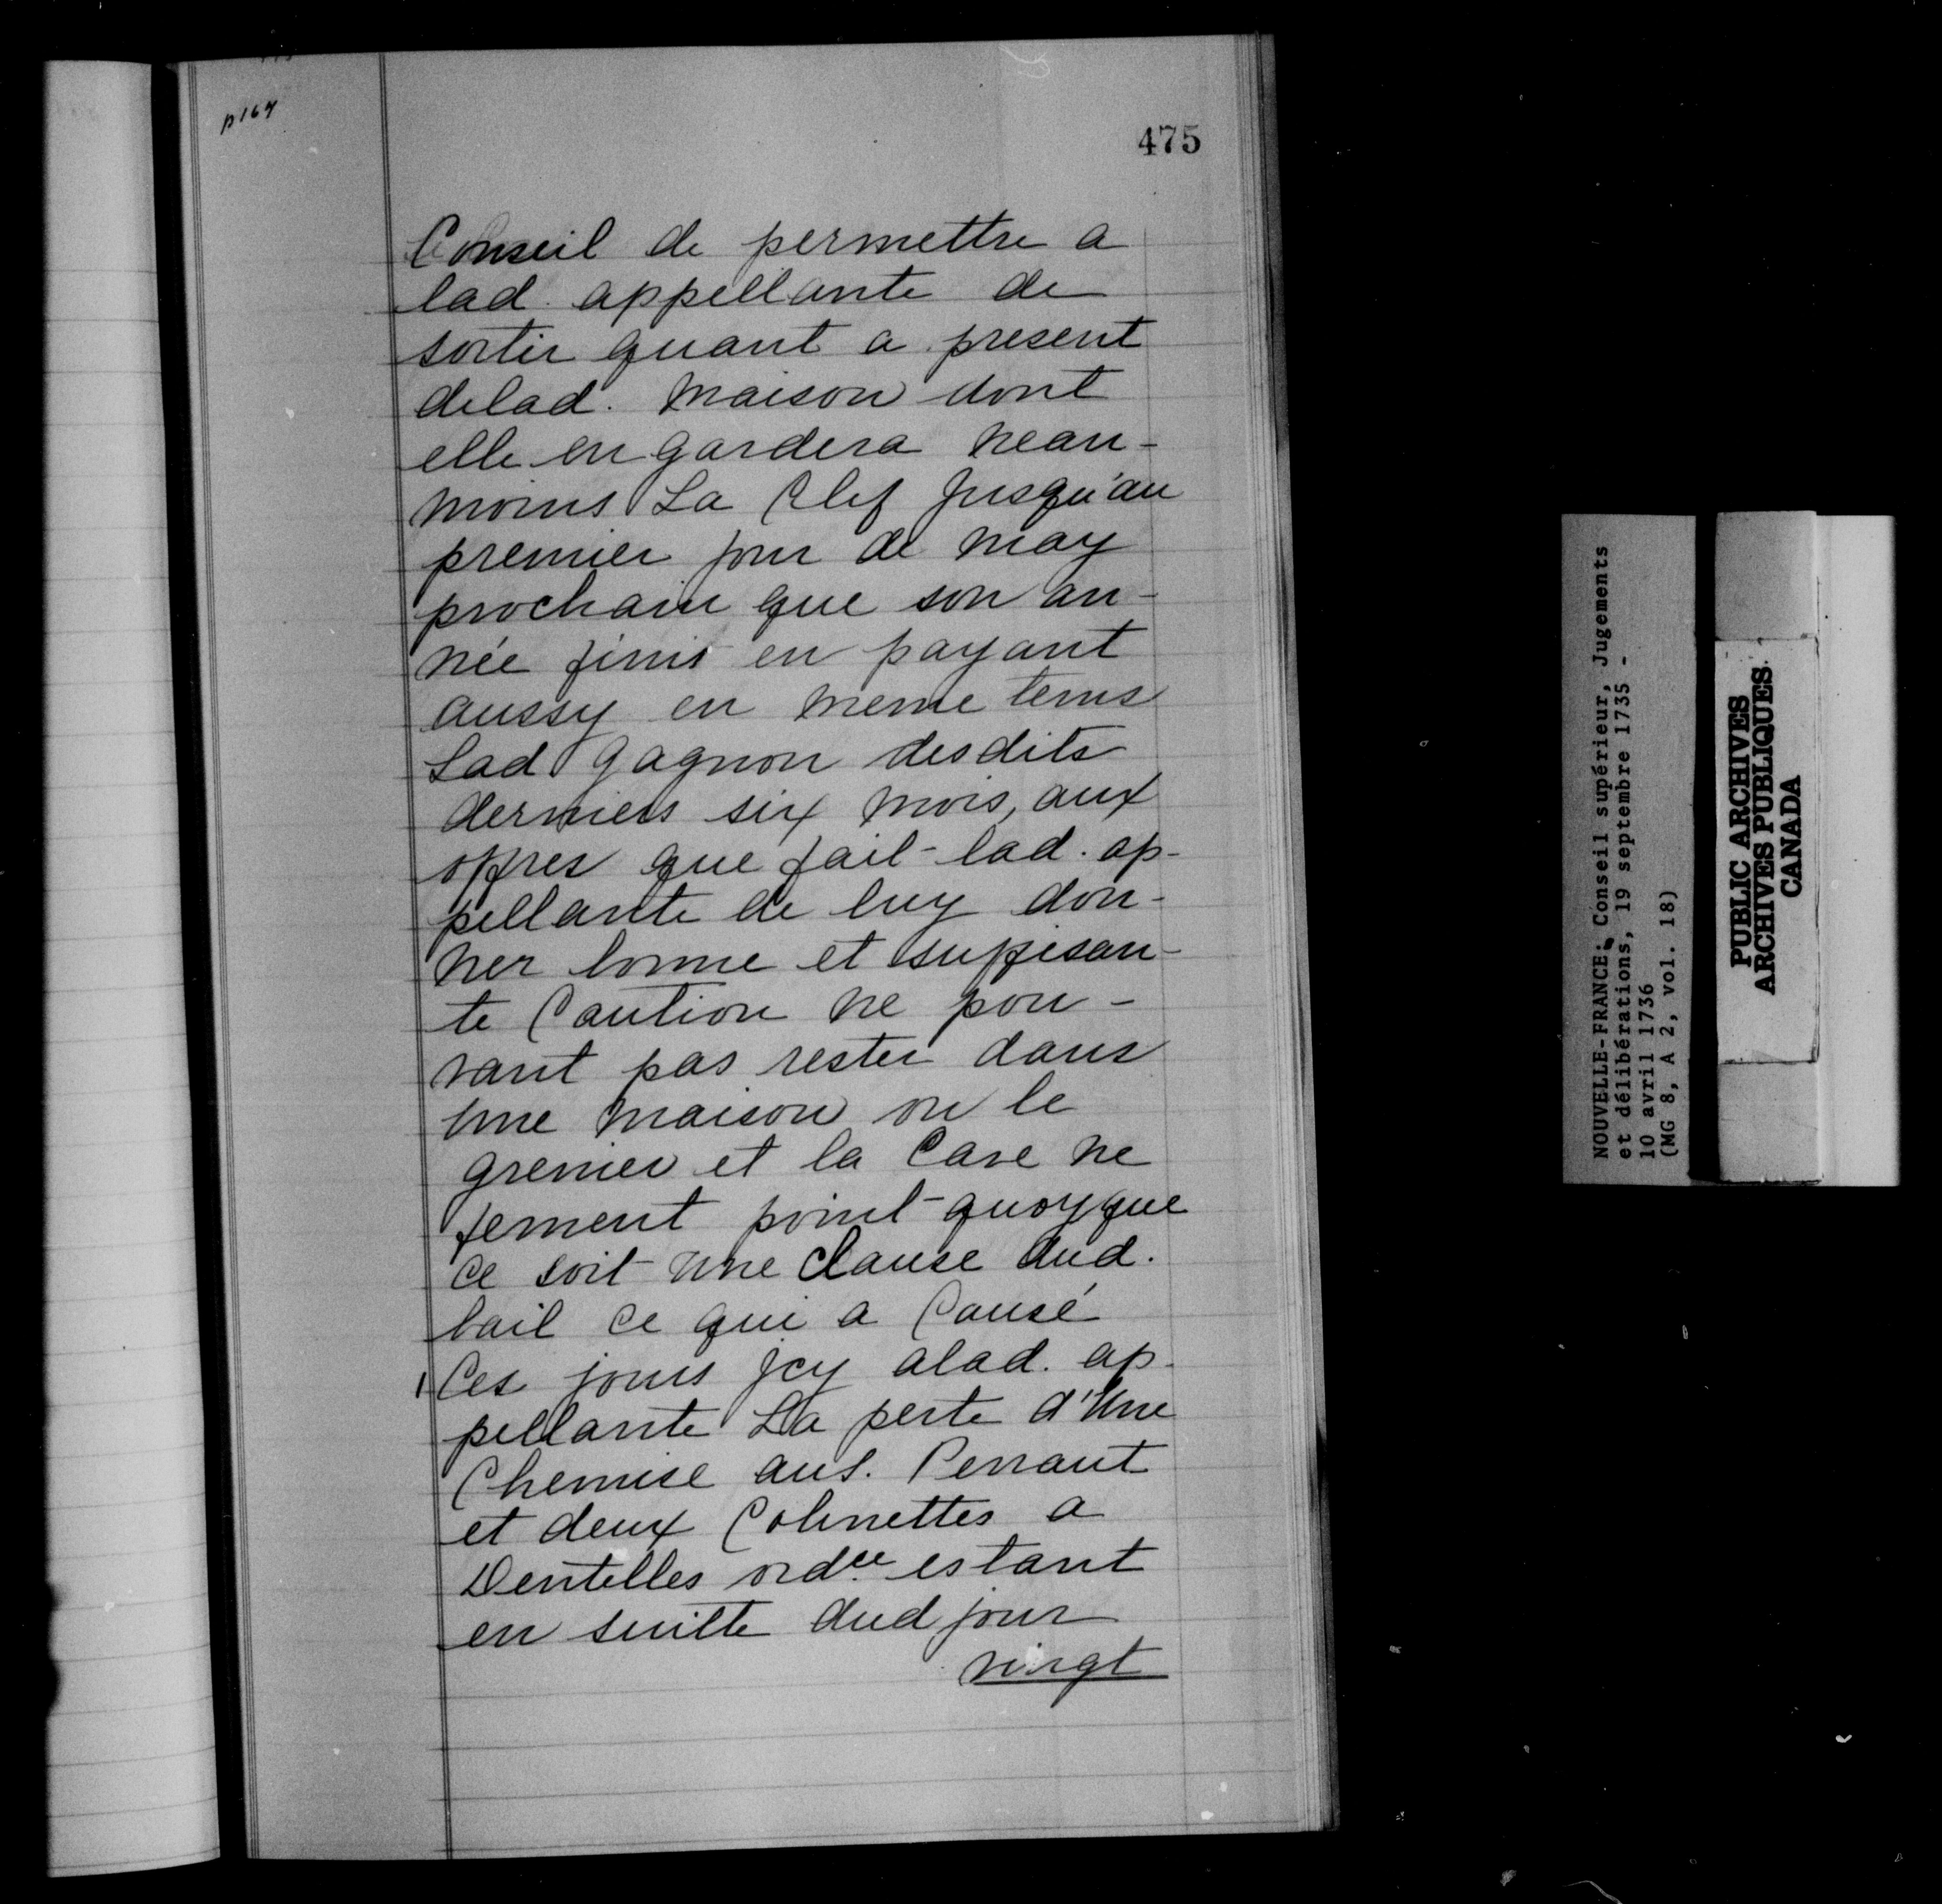 p167
475
Conseil de permettre a
lad. appellante de
sortir quant a present
delad. maison dont
elle en gardera nean-
moins La Clef Jusqu'au
premier jour de may
prochain que son an-
née finis en payant
aussy en meme tems
Lad Gagnon desdits
derniers six mois, aux
offres que fait lad. ap-
pellante de luy don-
ner bonne et suffisan-
te Caution ne pou-
vant pas rester dans
une maison ou le
grenier et la Cave ne
ferment point quoyque
ce soit une clause dud.
bail ce qui a Causé
Ces jours Jcy alad. ap-
pellante La perte d'Une
Chemise au s. Perraut
et deux Colinettes a
Dentelles ordce estant
en suitte dud jour
vingt
NOUVELLE-FRANCE: Conseil supérieur, Jugements
et délibérations, 19 septembre 1735 -
10 avril 1736
(MG 8, A 2, vol. 18)
PUBLIC ARCHIVES
ARCHIVES PUBLIQUES
CANADA